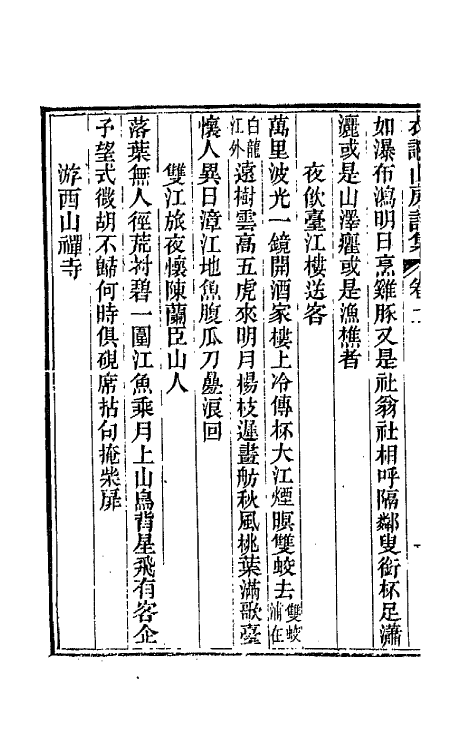 衣讔山房詩集 卷
如瀑布瀉明日烹雞豚又是社翁社相呼隔鄰叟銜杯足瀟
灑或是山澤癯或是漁樵者
夜飲臺江樓送客
萬里波光一鏡開酒家樓上冷傳杯大江煙暝雙蛟去雙蛟浦在
白龍江外遠樹雲高五虎來明月楊枝遲畫舫秋風桃葉滿歌臺
懷人異日漳江地魚腹瓜刀疊浪回
雙江旅夜懷陳蘭臣山人
落葉無人徑荒村碧一圍江魚乘月上山鳥背星飛有客企
予望式微胡不歸何時俱硯席拈句掩柴扉
游西山禪寺